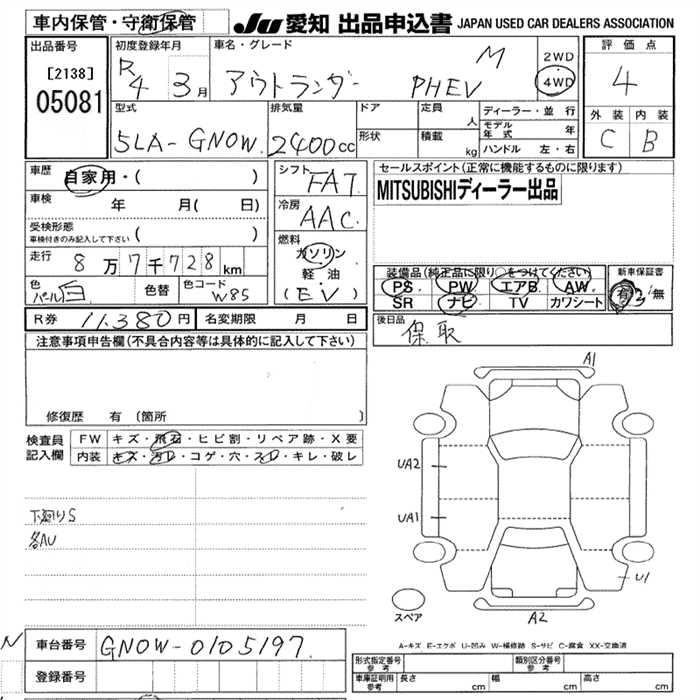 車内保管・守衛保管
JU 愛知 出品申込書 JAPAN USED CAR DEALERS ASSOCIATION
出品番号
[2138]
05081
初度登録年月
R 4 3月
車名・グレード
アウトランダー PHEV M
2WD
4WD
評価点
4
型式
5LA-GN0W
排気量
2400cc
ドア
形状
定員
人
積載
kg
ディーラー・並行
モデル年式 年
ハンドル 左・右
外装
C
内装
B
車歴
自家用・( )
車検
年 月( 日)
受検形態
車検付きのみ記入して下さい ( )
走行
8万7千728km
色
パール白
色替
色コード
W85
シフト
FA7
冷房
AAC
燃料
ガソリン
軽・油
(EV)
セールスポイント(正常に機能するものに限ります)
MITSUBISHIディーラー出品
装備品(純正品に限り○をつけてください)
PS PW エアB AW
SR ナビ TV カワシート
新車保証書
有・無
後日品
保、取
R券 11,380円
名変期限 月 日
注意事項申告欄(不具合内容等は具体的に記入して下さい)
修復歴 有 (箇所 )
検査員記入欄
FW キズ・飛石・ヒビ割・リペア跡・X要
内装 キズ・汚レ・コゲ・穴・スレ・キレ・破レ
下廻りS
各AU
A1
UA2
UA1
U1
スペア
A2
A-キズ E-エクボ U-凹み W-補修跡 S-サビ C-腐食 XX-交換済
N
車台番号
GN0W-0105197
登録番号
形式指定番号参考
類別区分番号参考
車庫証明用参考
長さ cm
幅 cm
高さ cm